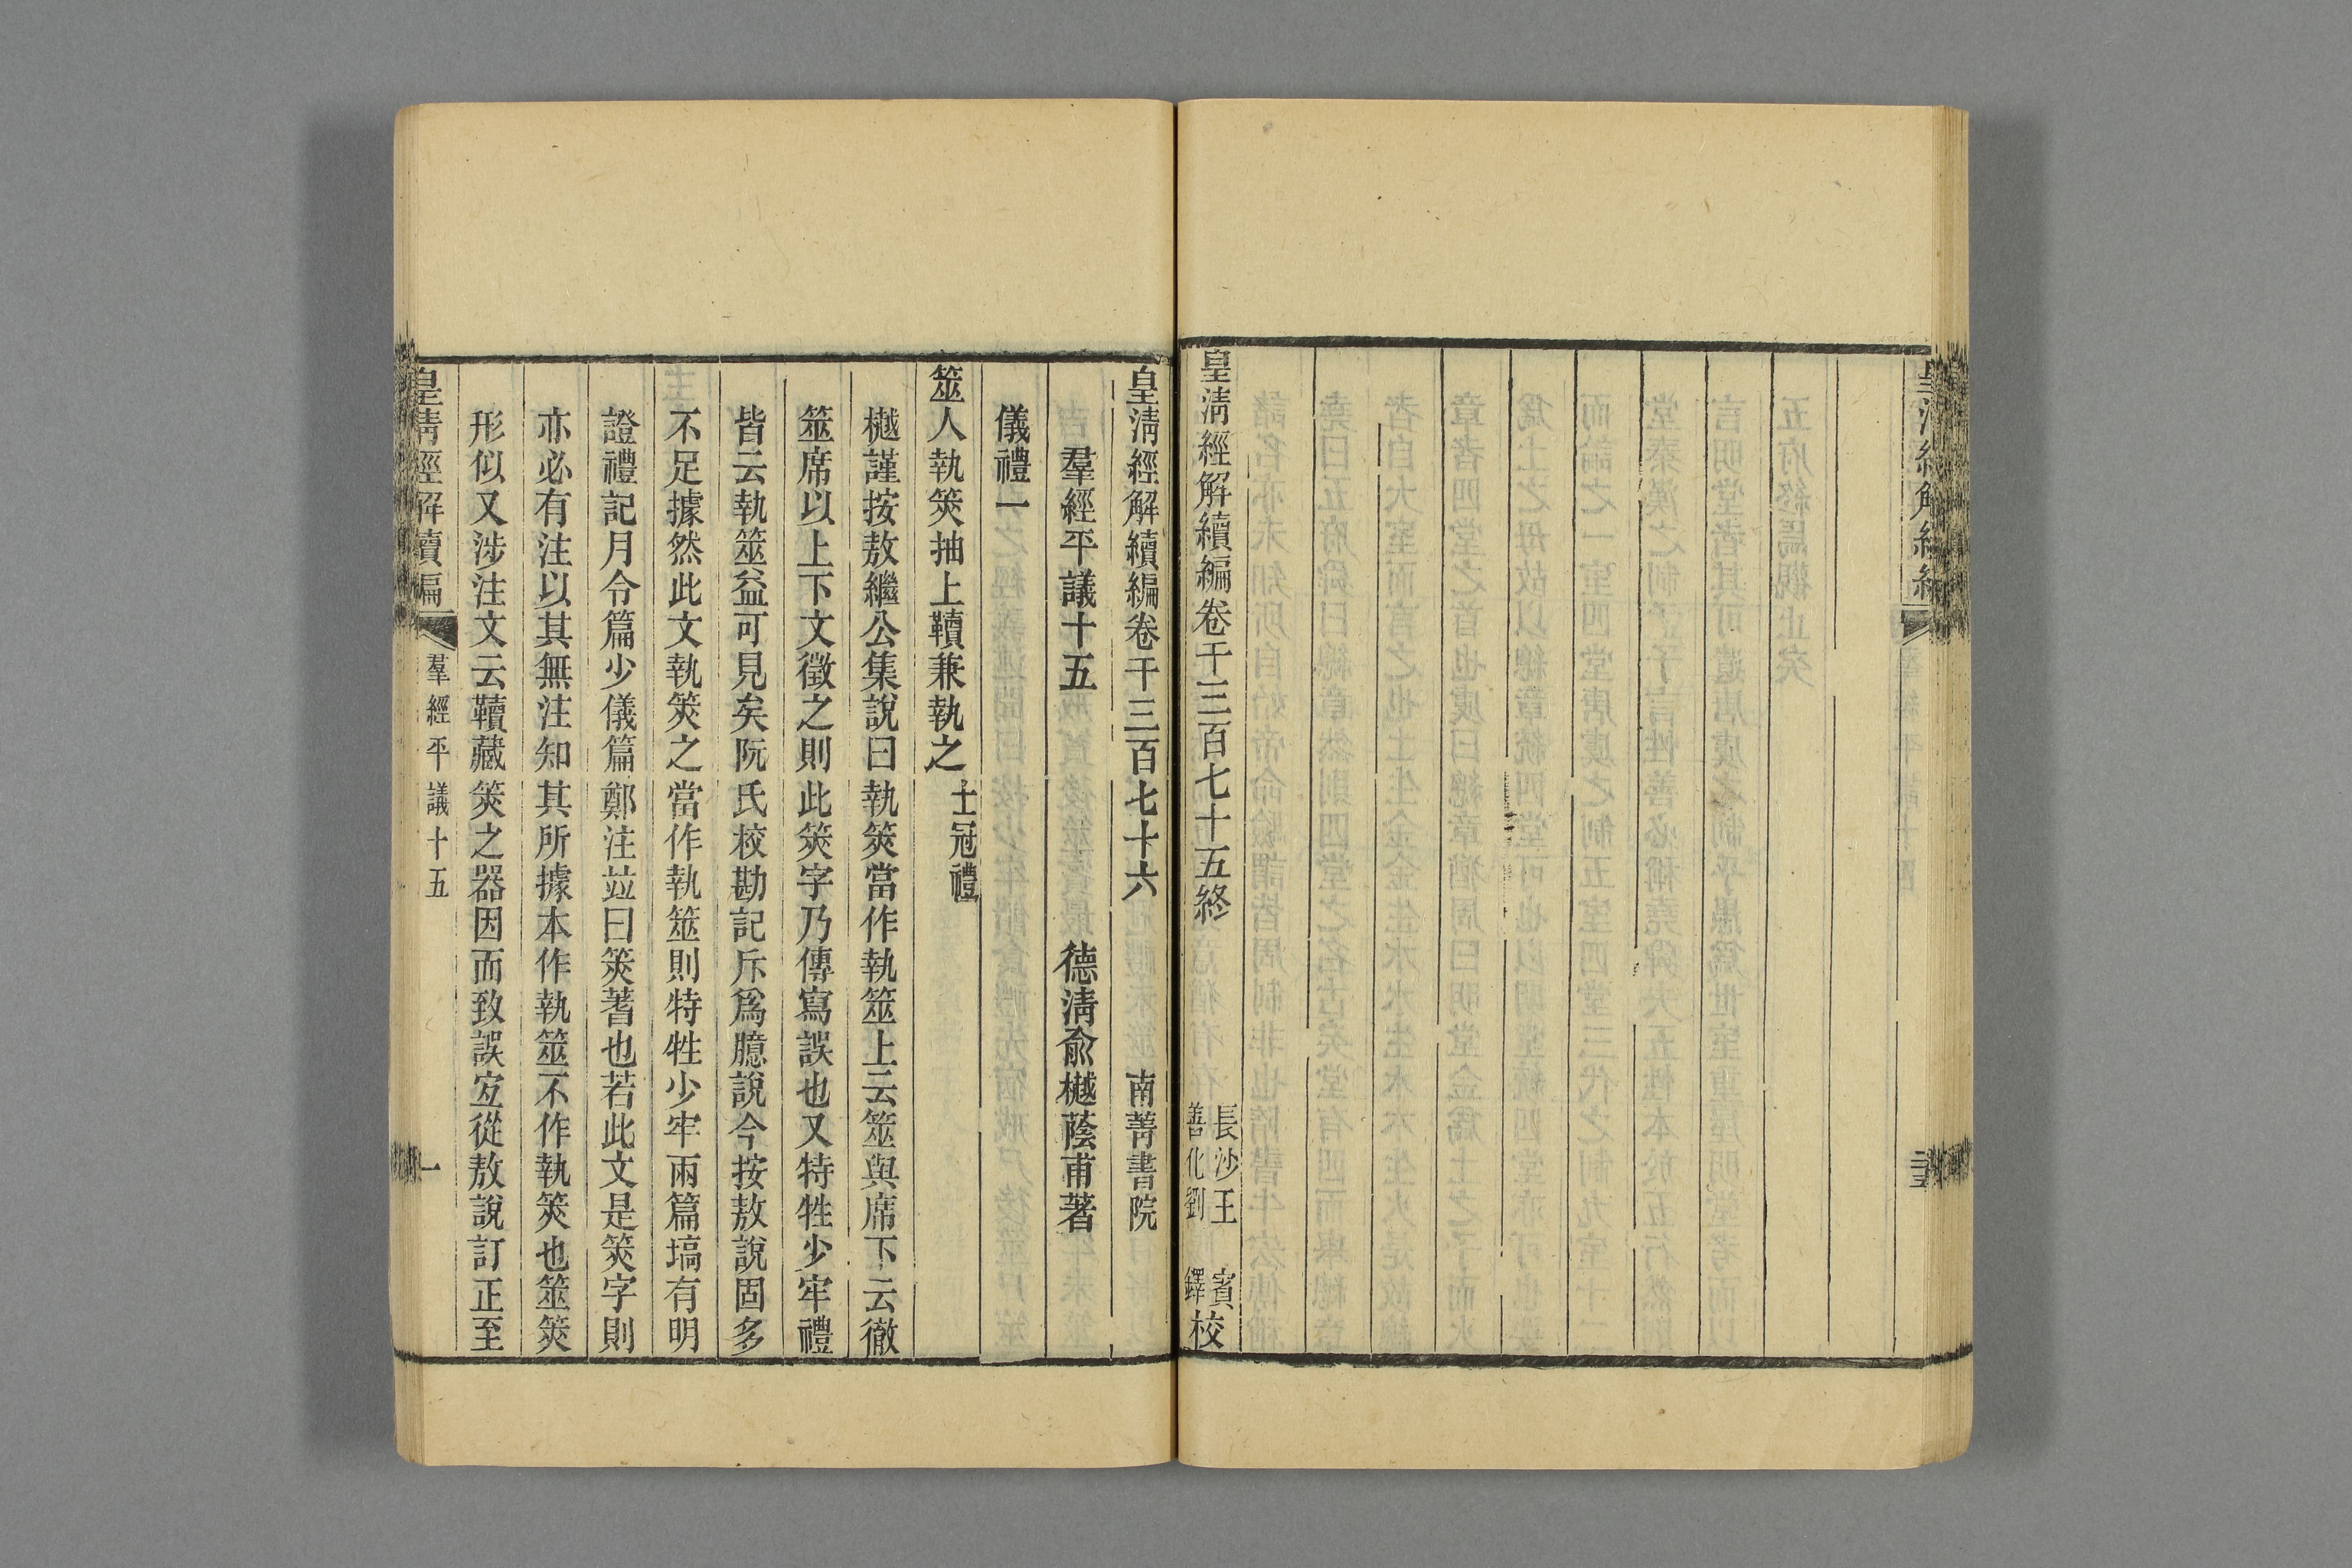 皇清經解續編卷千三百七十五終
長沙王賓
善化劉鐸校
皇清經解續編卷千三百七十六 南菁書院
羣經平議十五 德清俞樾蔭甫著
儀禮一
筮人執筴抽上韇兼執之 士冠禮
樾謹按敖繼公集說曰執筴當作執筮上云筮與席下云徹
筮席以上下文徵之則此筴字乃傳寫誤也又特牲少牢禮
皆云執筮益可見矣阮氏校勘記斥爲臆說今按敖說固多
不足據然此文執筴之當作執筮則特牲少牢兩篇塙有明
證禮記月令篇少儀篇鄭注竝曰筴蓍也若此文是筴字則
亦必有注以其無注知其所據本作執筮不作執筴也筮筴
形似又涉注文云韇藏筴之器因而致誤宐從敖說訂正至
皇清經解續編 羣經平議十五 一